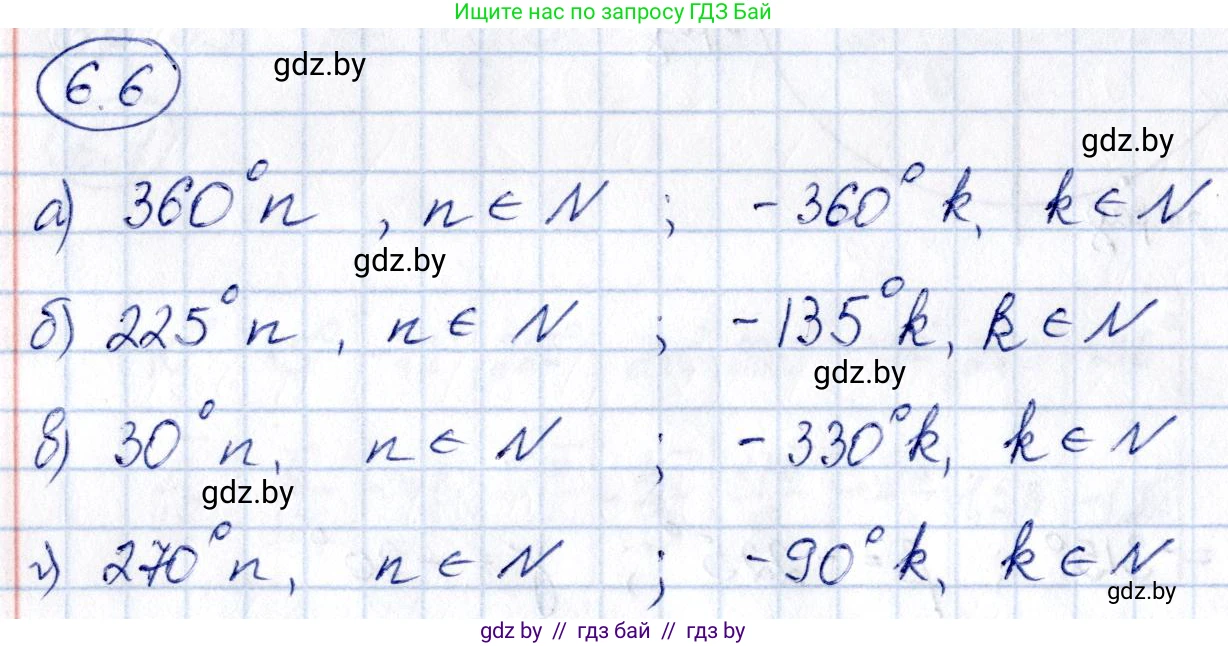 Ищите нас по запросу ГДЗ Бай
6.6
gdz.by
gdz.by
а) 360° n , n ∈ N ; - 360° k, k ∈ N
gdz.by
б) 225° n , n ∈ N ; - 135° k, k ∈ N
gdz.by
в) 30° n, n ∈ N ; - 330° k, k ∈ N
gdz.by
г) 270° n, n ∈ N ; - 90° k, k ∈ N
gdz.by
gdz by // гдз бай // гдз by